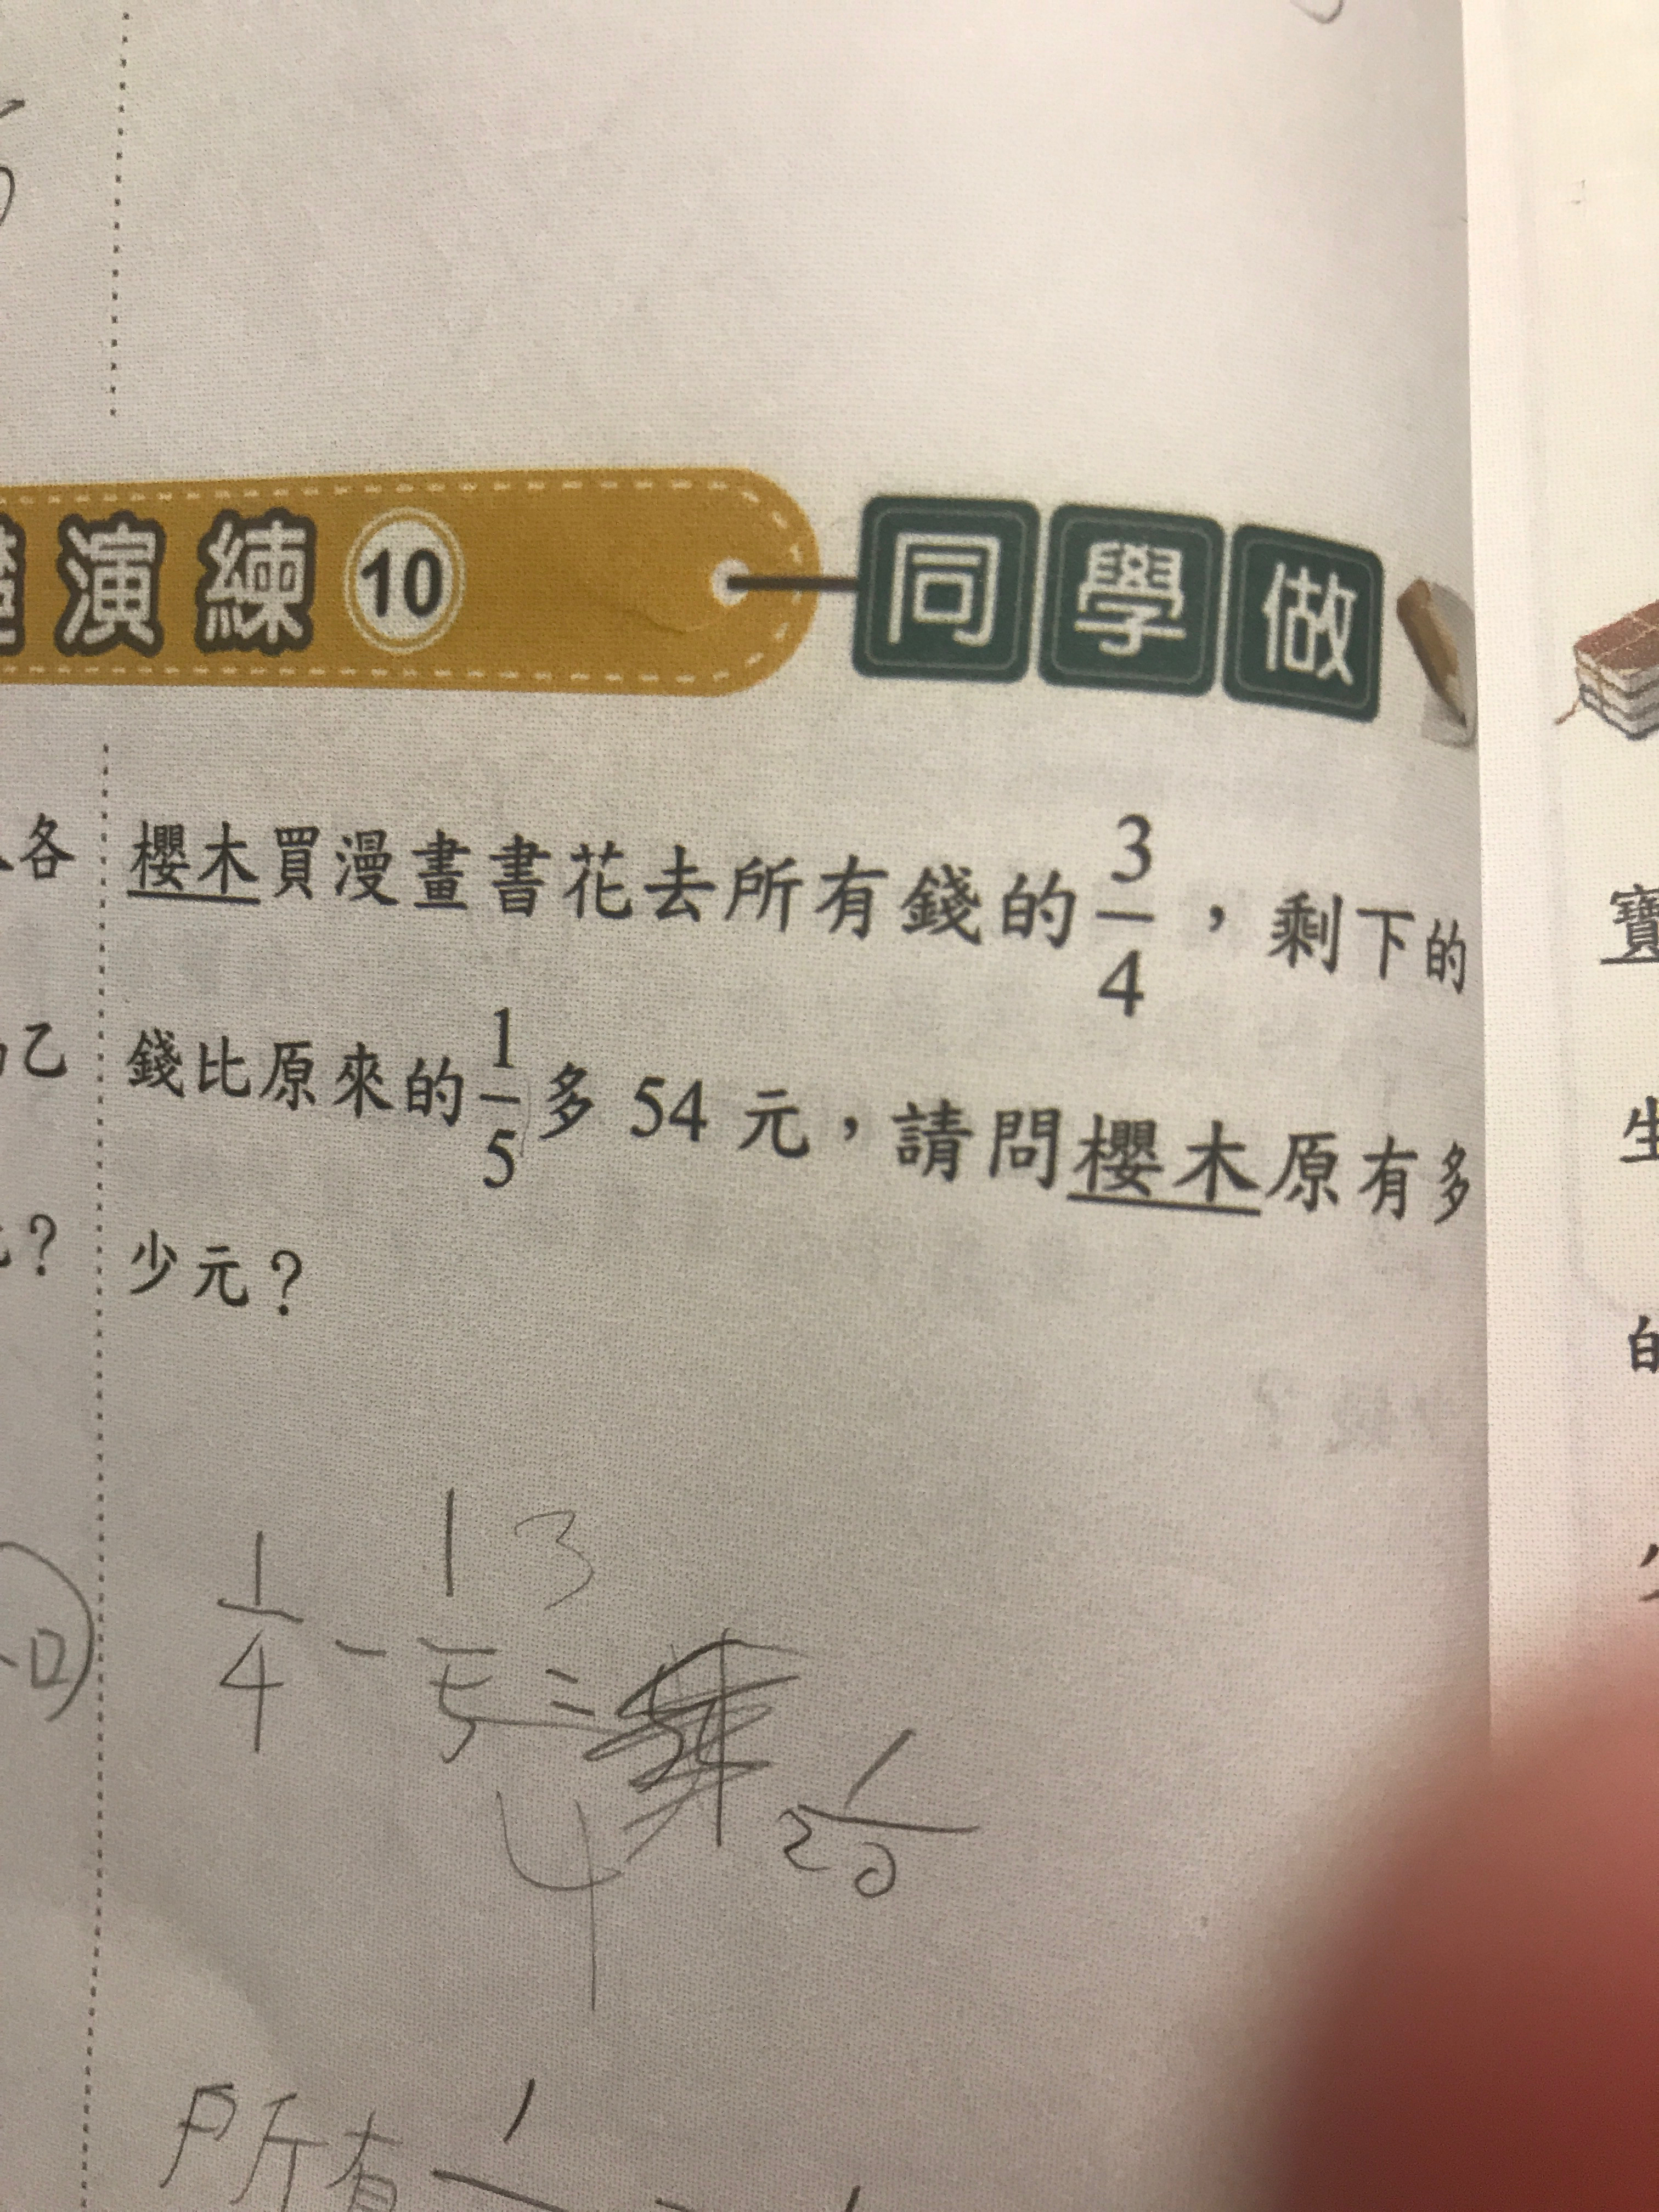 演練 10 同學做
各
櫻木買漫畫書花去所有錢的 3/4 ，剩下的
乙
錢比原來的 1/5 多 54 元，請問櫻木原有多
？
少元？
寶
生
的
1/4 - 1/5 = 1/20
3
4
所有